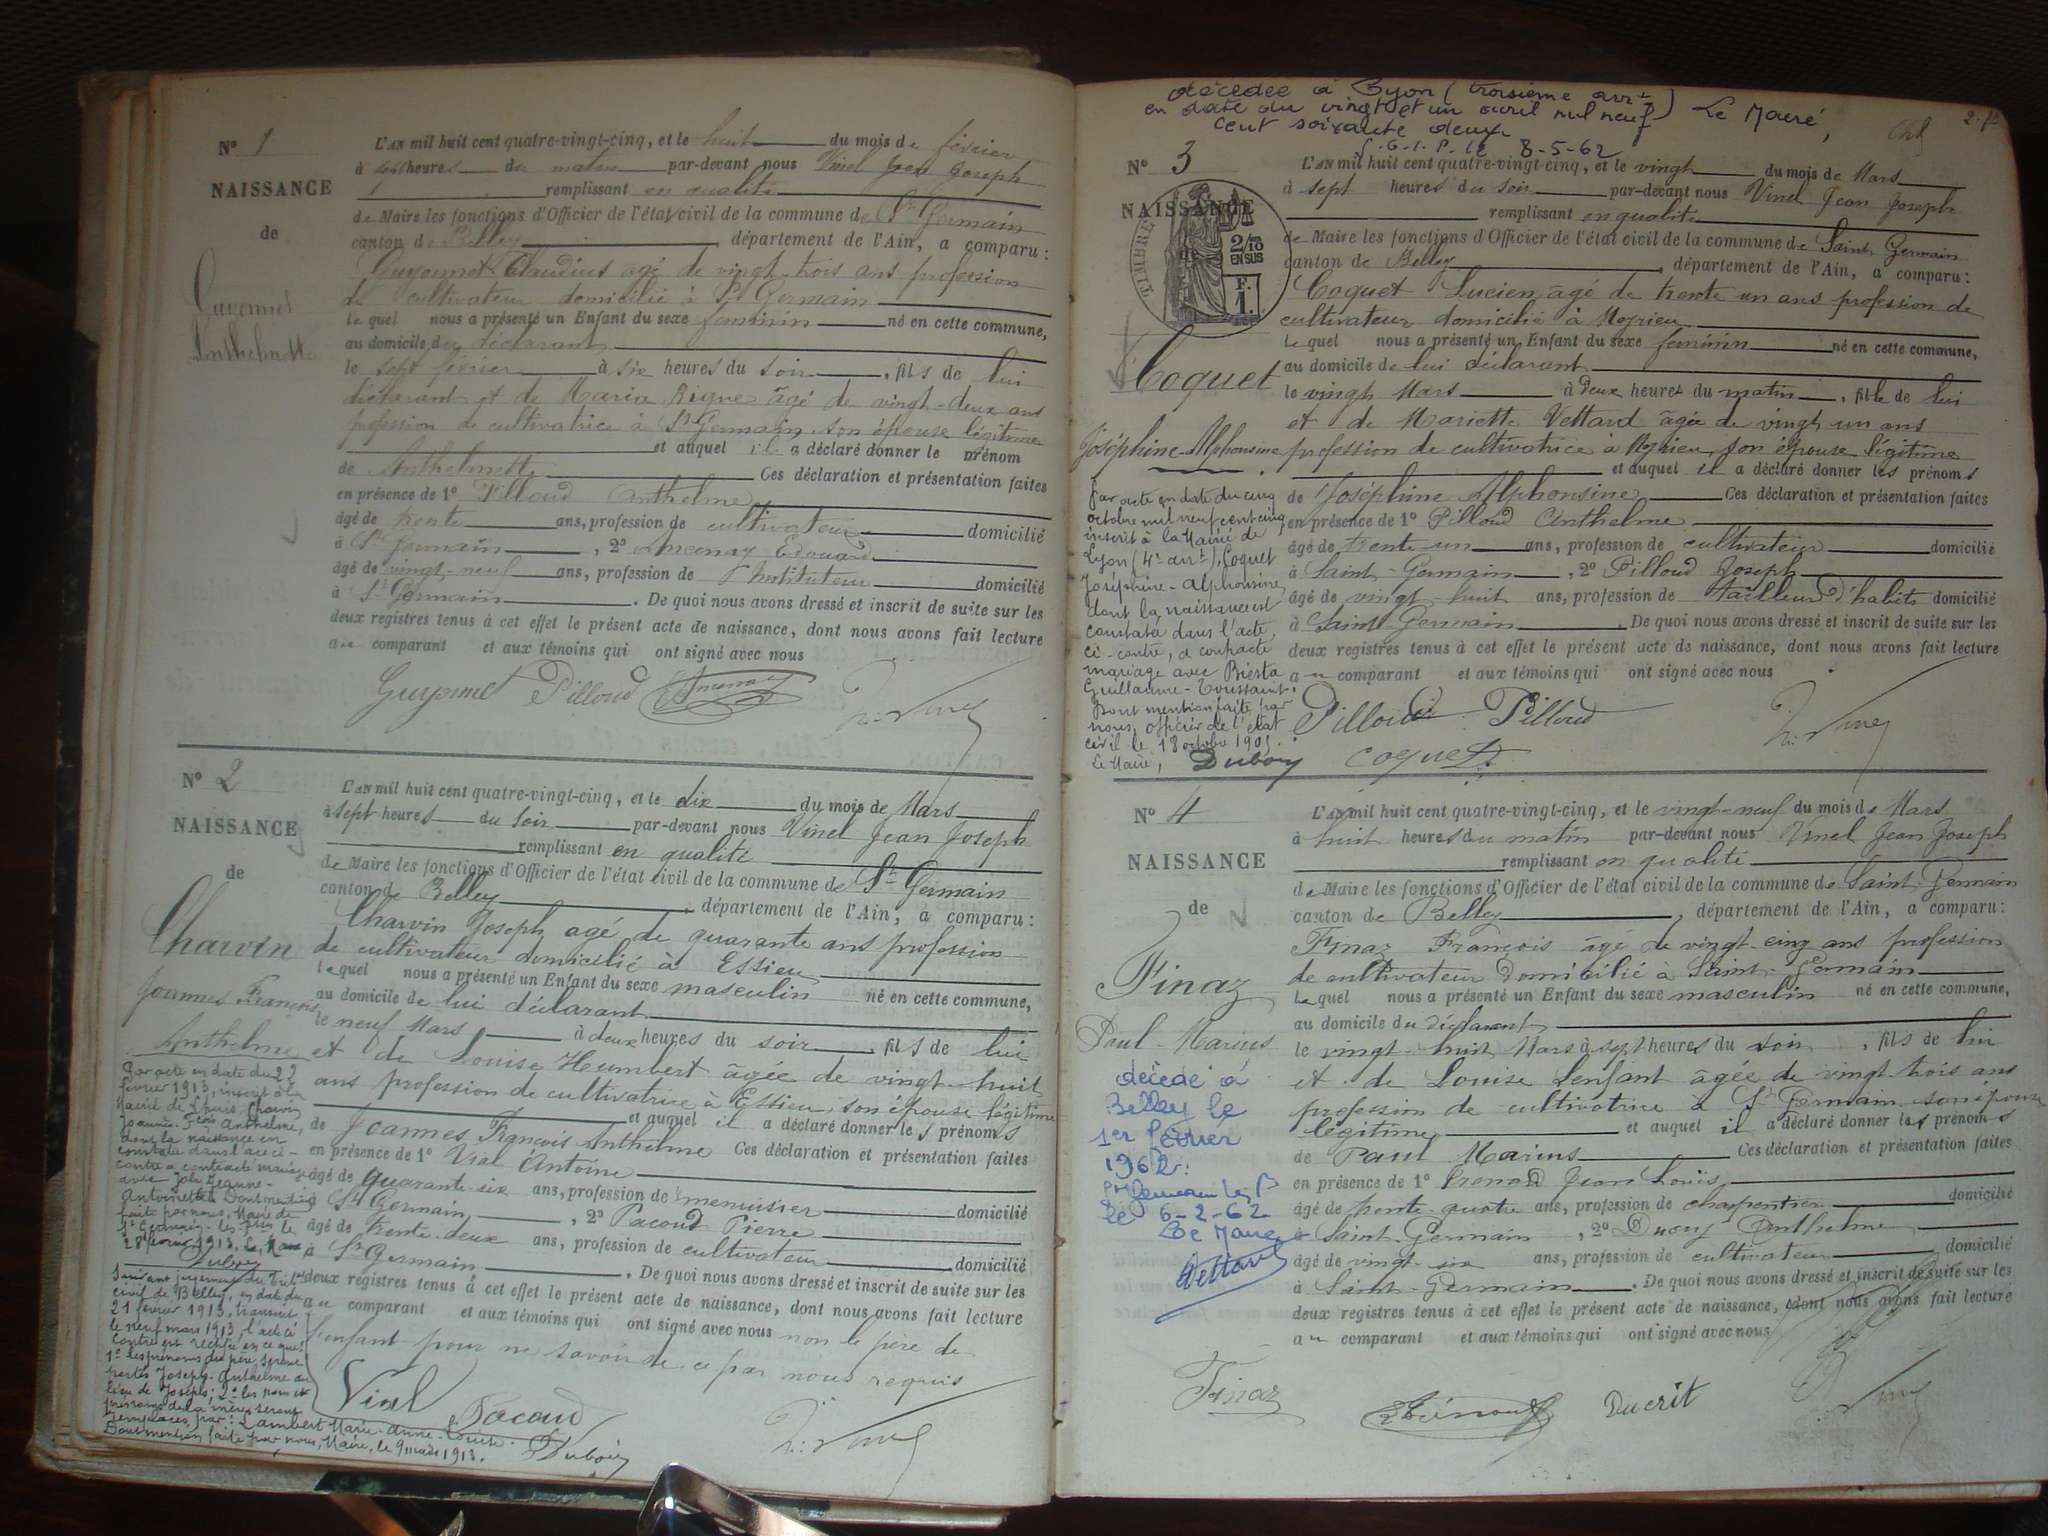 Nº 1
NAISSANCE
de
Guyonnet
Anthelmette
L'AN mil huit cent quatre-vingt-cinq, et le huit du mois de février
à heures du matin par-devant nous Vinel Jean Joseph
remplissant en qualité
de Maire les fonctions d'Officier de l'état civil de la commune de St Germain
canton de Belley, département de l'Ain, a comparu :
Guyonnet Claudius âgé de vingt-trois ans profession
de cultivateur domicilié à St Germain
le quel nous a présenté un Enfant du sexe féminin né en cette commune,
au domicile du déclarant
le sept février à six heures du soir, fils de lui
déclarant et de Maria âgé de vingt-deux ans
profession de cultivatrice à St Germain, son épouse légitime
et auquel il a déclaré donner le prénom
de Anthelmette Ces déclaration et présentation faites
en présence de 1º Pilloud Anthelme
âgé de trente ans, profession de cultivateur domicilié
à St Germain, 2º Edouard
âgé de vingt-neuf ans, profession de Instituteur domicilié
à St Germain. De quoi nous avons dressé et inscrit de suite sur les
deux registres tenus à cet effet le présent acte de naissance, dont nous avons fait lecture
au comparant et aux témoins qui ont signé avec nous
Guyonnet Pilloud
J. Vinel
Nº 2
NAISSANCE
de
Charvin
Joannes François
Anthelme
L'AN mil huit cent quatre-vingt-cinq, et le dix du mois de Mars
à sept heures du soir par-devant nous Vinel Jean Joseph
remplissant en qualité
de Maire les fonctions d'Officier de l'état civil de la commune de St Germain
canton de Belley, département de l'Ain, a comparu :
Charvin Joseph, âgé de quarante ans profession
de cultivateur domicilié à Essieu
le quel nous a présenté un Enfant du sexe masculin né en cette commune,
au domicile de lui déclarant
le neuf Mars à deux heures du soir, fils de lui
et de Louise Humbert âgée de vingt-huit
ans profession de cultivatrice à Essieu, son épouse légitime
et auquel il a déclaré donner les prénoms
de Joannes François Anthelme Ces déclaration et présentation faites
en présence de 1º Vial Antoine
âgé de quarante-six ans, profession de menuisier domicilié
à St Germain, 2º Pacoud Pierre
âgé de trente-deux ans, profession de cultivateur domicilié
à St Germain. De quoi nous avons dressé et inscrit de suite sur les
deux registres tenus à cet effet le présent acte de naissance, dont nous avons fait lecture
au comparant et aux témoins qui ont signé avec nous non le père de
l'enfant pour ne savoir de ce par nous requis
Vial Pacoud
J. Vinel
Par acte en date du 22
février 1913, inscrit à la
Mairie de Lhuis, Charvin
Joannès-Fçois Anthelme,
dont la naissance est
constatée dans l'acte ci-
contre a contracté mariage
avec Joly Jeanne-
Antoinette. Dont mention
faite par nous, Maire de
St Germain-les- le
28 février 1913. Le Maire
Duboy
Suivant jugement du Tribal
civil de Belley, en date du
21 février 1913, transcrit
le neuf mars 1913, l'acte ci-
contre est rectifié en ce que:
1º les prénoms du père seront
portés Joseph-Anthelme au
lieu de Joseph; 2º les nom et
prénoms de la mère seront
remplacés par: Lambert Marie-Anne-Louise.
Dont mention faite par nous, Maire, le 9 mars 1913.
Duboy
décédée à Lyon (troisième arrt)
en date du vingt et un avril mil neuf
cent soixante deux Le Maire,
8-5-62
Nº 3
NAISSANCE
de
TIMBRE
2/10
EN SUS
F.
1.
Coquet
Joséphine-Alphonsine
L'AN mil huit cent quatre-vingt-cinq, et le vingt du mois de Mars
à sept heures du soir par-devant nous Vinel Jean Joseph
remplissant en qualité
de Maire les fonctions d'Officier de l'état civil de la commune de Saint Germain
canton de Belley, département de l'Ain, a comparu :
Coquet Lucien, âgé de trente un ans profession de
cultivateur domicilié à Meyrieu
le quel nous a présenté un Enfant du sexe féminin né en cette commune,
au domicile de lui déclarant
le vingt Mars à Deux heures du matin, fille de lui
et de Mariette Vettard âgée de vingt un ans
profession de cultivatrice à Meyrieu, son épouse légitime
et auquel il a déclaré donner les prénoms
de Joséphine Alphonsine Ces déclaration et présentation faites
en présence de 1º Pilloud Anthelme
âgé de trente-un ans, profession de cultivateur domicilié
à Saint-Germain, 2º Pilloud Joseph
âgé de vingt-huit ans, profession de tailleur d'habits domicilié
à Saint-Germain. De quoi nous avons dressé et inscrit de suite sur les
deux registres tenus à cet effet le présent acte de naissance, dont nous avons fait lecture
au comparant et aux témoins qui ont signé avec nous
Pilloud Pilloud
Coquet
J. Vinel
Par acte en date du cinq
octobre mil neuf cent cinq
inscrit à la Mairie de
Lyon (4e arrt), Coquet
Joséphine-Alphonsine,
dont la naissance est
constatée dans l'acte
ci-contre, a contracté
mariage avec Biesta
Guillaume-Toussaint.
Dont mention faite par
nous, officier de l'état
civil le 18 octobre 1905.
Le Maire, Duboy
Nº 4
NAISSANCE
de
Finaz
Paul-Marius
L'AN mil huit cent quatre-vingt-cinq, et le vingt-neuf du mois de Mars
à huit heures du matin par-devant nous Vinel Jean Joseph
remplissant en qualité
de Maire les fonctions d'Officier de l'état civil de la commune de Saint-Germain
canton de Belley, département de l'Ain, a comparu :
Finaz François âgé de vingt-cinq ans profession
de cultivateur domicilié à Saint-Germain
le quel nous a présenté un Enfant du sexe masculin né en cette commune,
au domicile du déclarant
le vingt-huit Mars à sept heures du soir, fils de lui
et de Louise Lenfant âgée de vingt trois ans
profession de cultivatrice à St Germain, son épouse
légitime et auquel il a déclaré donner les prénoms
de Paul Marius Ces déclaration et présentation faites
en présence de 1º Jean Louis
âgé de trente-quatre ans, profession de charpentier domicilié
à Saint-Germain, 2º Anthelme
âgé de vingt-six ans, profession de cultivateur domicilié
à Saint-Germain. De quoi nous avons dressé et inscrit de suite sur les
deux registres tenus à cet effet le présent acte de naissance, dont nous avons fait lecture
au comparant et aux témoins qui ont signé avec nous
Finaz Ducrit
J. Vinel
décédé à
Belley le
1er février
1962.
St Germain les P
le 6-2-62
Le Maire
Vettard